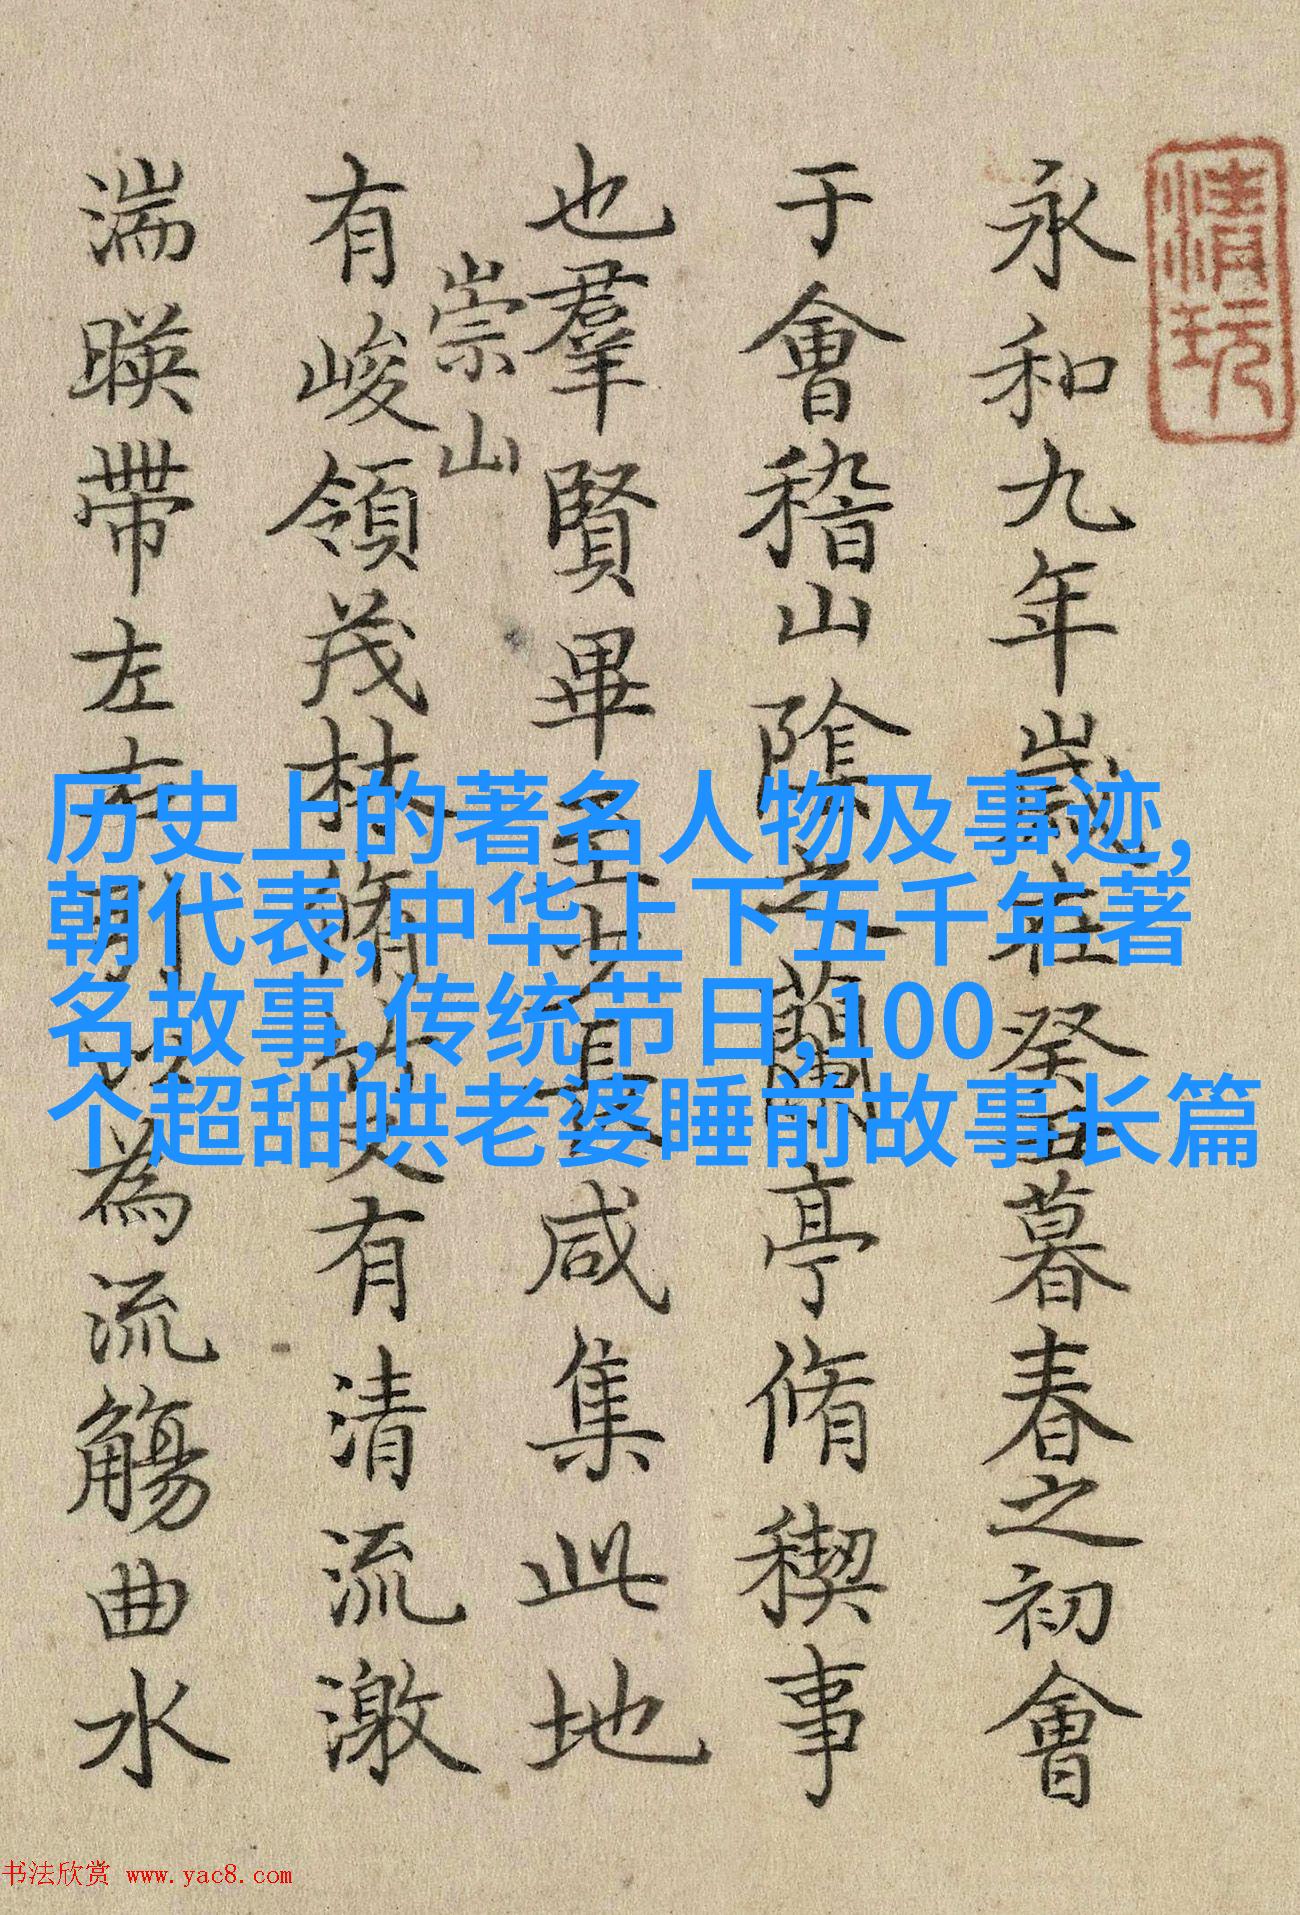 清玩
永和九年歲在癸丑暮春之初會
于會稽山隂之蘭亭脩稧事
也羣賢畢至少長咸集此地
崇山
有峻領茂林脩竹又有清流激
湍暎帶左右引以為流觴曲水
历史上的著名人物及事迹,
朝代表,中华上下五千年著
名故事,传统节日,100
个超甜哄老婆睡前故事长篇
书法欣赏 www.yac8.com